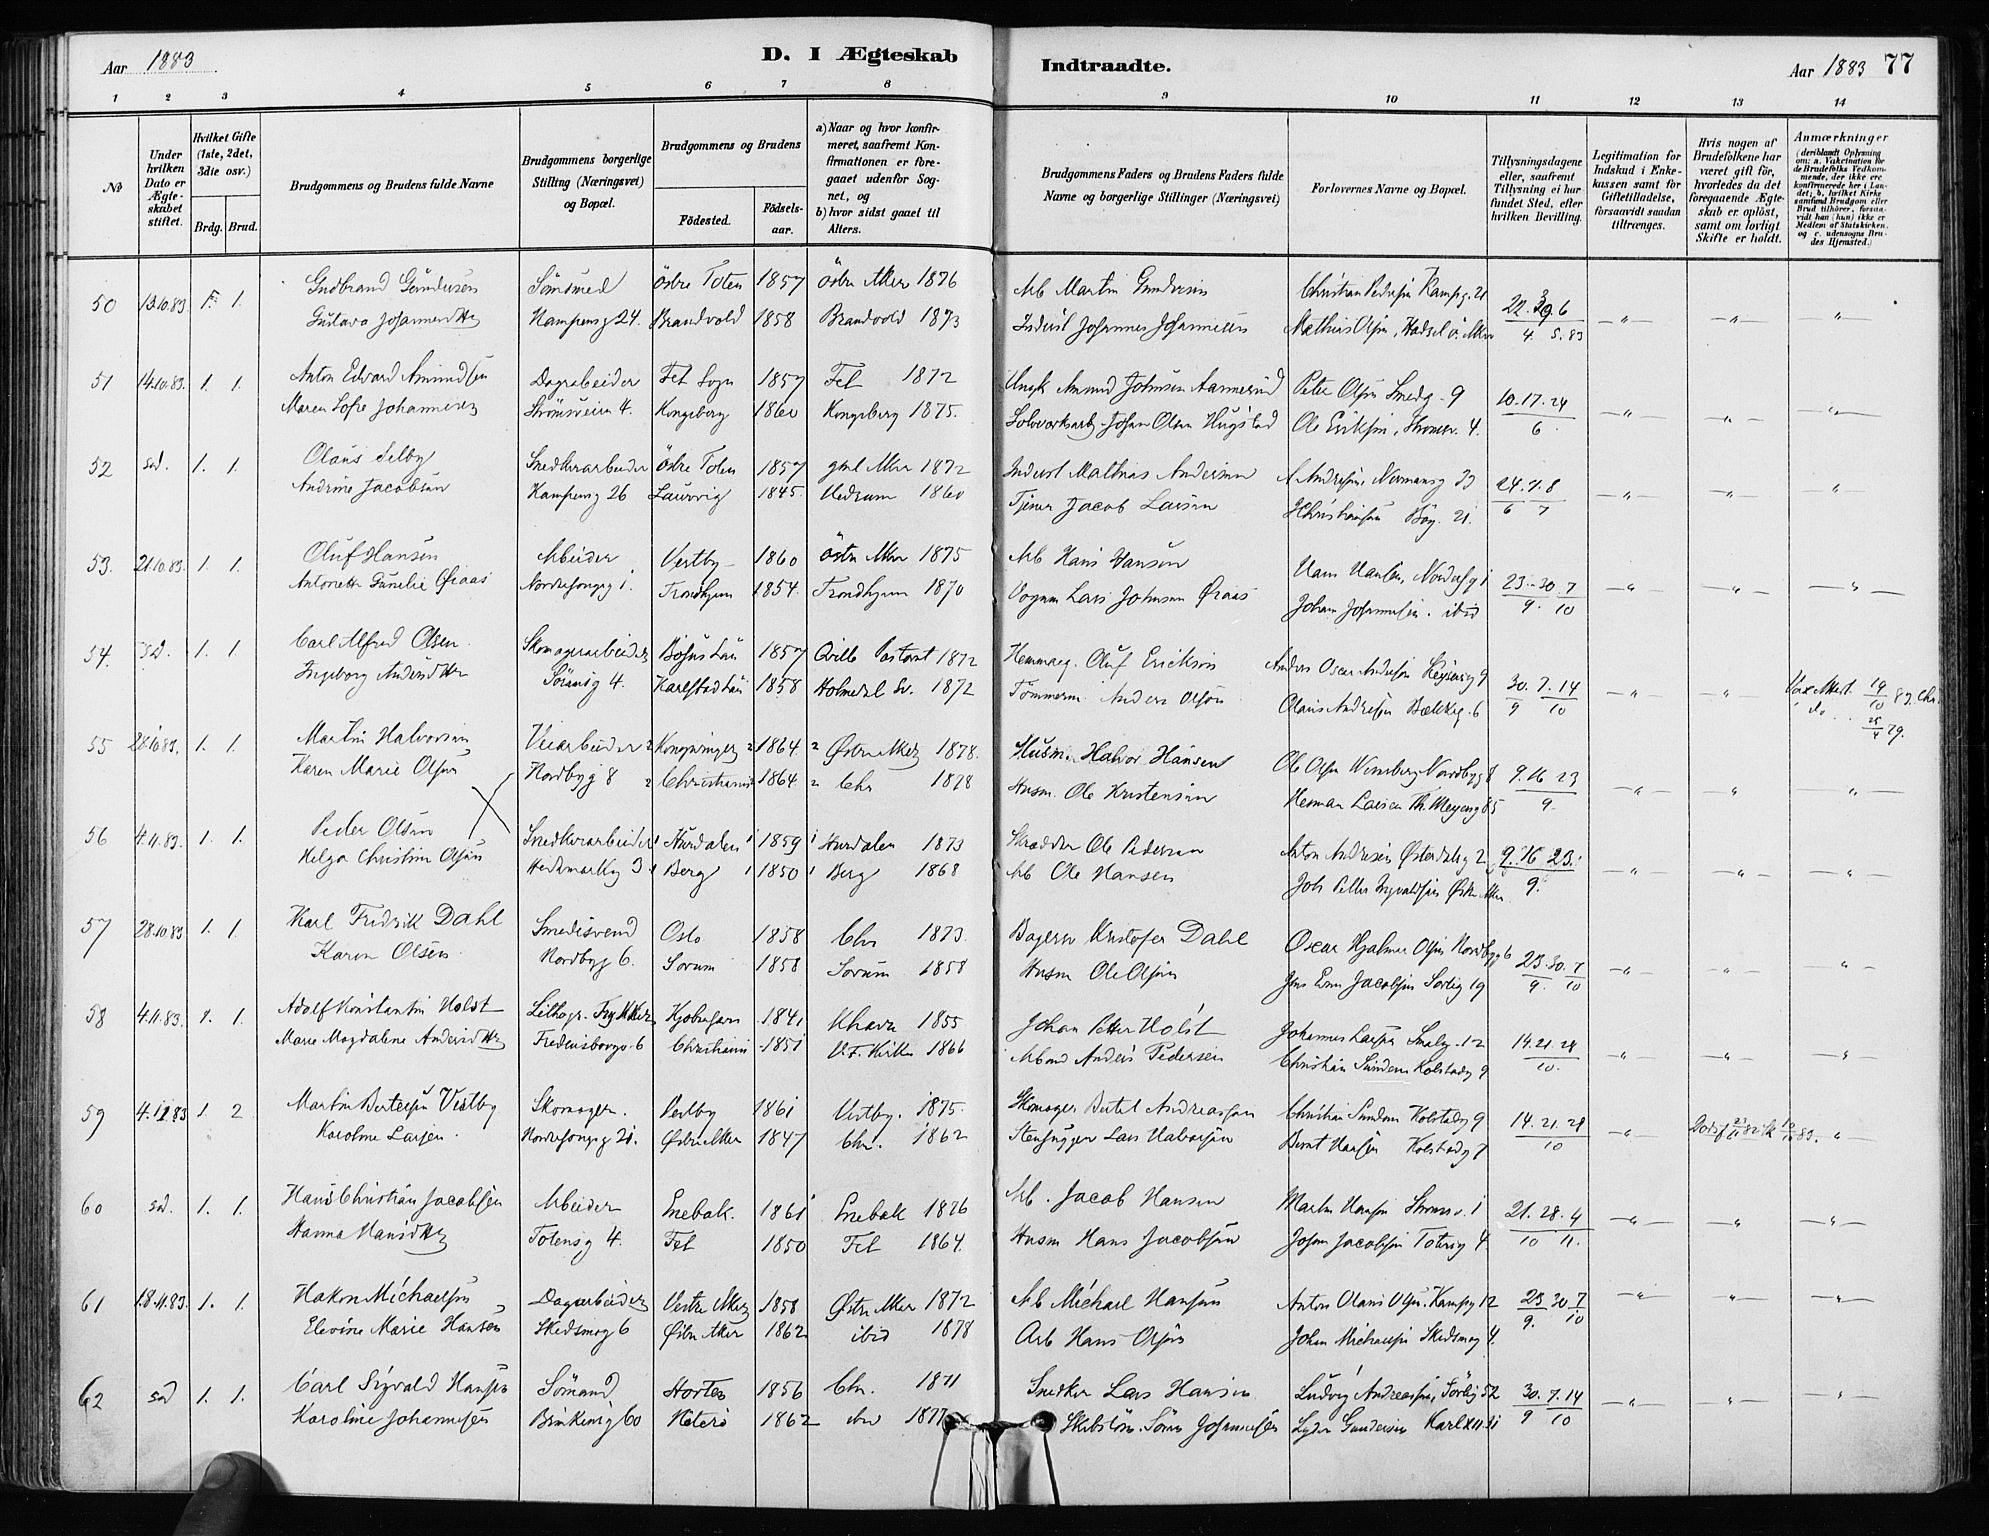 Aar 1883
D. I Ægteskab
Indtraadte.
Aar 1883 77
1 2 3 4 5 6 7 8 9 10 11 12 13 14
No
Under hvilken Dato er Ægteskabet stiftet.
Hvilket Gifte (1ste, 2det, 3die osv.)
Brdg. Brud.
Brudgommens og Brudens fulde Navne
Brudgommens borgerlige Stilling (Næringsvei) og Bopæl.
Brudgommens og Brudens
Födested.
Födselsaar.
a) Naar og hvor konfirmeret, saafremt Konfirmationen er foregaaet udenfor Sognet, og
b) hvor sidst gaaet til Alters.
Brudgommens Faders og Brudens Faders fulde Navne og borgerlige Stillinger (Næringsvei)
Forlovernes Navne og Bopæl.
Tillysningsdagene eller, saafremt Tillysning ei har fundet Sted, efter hvilken Bevilling.
Legitimation for Indskud i Enkekassen samt for Giftetilladelse, forsaavidt saadan tiltrænges.
Hvis nogen af Brudefolkene har været gift för, hvorledes da det foregaaende Ægteskab er oplöst, samt om lovligt Skifte er holdt.
Anmærkninger (deriblandt Oplysning om: a. Vakcination for de Brudefolks Vedkommende, der ikke ere konfirmerede her i Landet; b. hvilket Kirkesamfund Brudgom eller Brud tilhörer, forsaavidt han (hun) ikke er Medlem af Statskirken, og c. udensogns Brudes Hjemsted.)
50 13.10.83. 1. Gudbrand Gundersen Sömand Östre Toten 1857 Östre Aker 1876 Arb Martin Gundersen Christian Pedersen Kampg. 21 22. 29 6
Gustava Johannesdtr Kampensg 24. Brandvold 1858 Brandvold 1873 Inderst Johannes Johannesen Mathias Olsen, Hadsel ö. Aker 4. 5. 83
51 14.10.83. 1. 1. Anton Edvard Amundsen Dagarbeider Fet Sogn 1857 Fet 1872 Amund Johnsen Aamerud Peter Olsen Smedg. 9 10. 17. 24
Maren Sofie Johannesen Strömsveien 4. Kongsberg 1860 Kongsberg 1875. Sölvverksarb. Johan Olsen Hugstad Ole Eriksen, Strömsv. 4. 6
52 sd. 1. 1. Olaus Selby Snedkerarbeider Östre Toten 1857 gml Aker 1872 Inderst Mathias Andersen A Andresen, Normansg 33 24. 1. 8
Andrine Jacobsen Kampensg 26 Laurvig 1845. Hedrum 1860 Tjener Jacob Larsen H Christiansen Bög. 21. 6 7
53. 21.10.83. 1. 1. Oluf Hansen Arbeider Vestby 1860 Östre Aker 1875 Arb Hans Hansen Hans Hansen, Nordrefg 1 23. 30. 7
Antonette Gunelie Öraas Nordrefongsg 1. Trondhjem 1854. Trondhjem 1870 Vognm Lars Johnsen Öraas Johan Johannesen. ibid 9. 10
54. sd. 1. 1 Carl Alfred Olsen. Skomagerarbeider Bohus Län 1857 Qville Pastorat 1872 Hemmaeg. Oluf Erickson Anders Oscar Andresen Heyensg 9 30. 7. 14
Ingeborg Andersdtr Sörensg 4. Karlstad Län 1858 Holmedal Sv. 1872 Tömmerm Anders Olsson Olaus Andresen Bakkeg. 6 9 10
Vax Attest 19/10 83. Chr. do. 28/4 79.
55 28.10.83. 1. 1. Martin Halvorsen Veiarbeider Kongsvinger 1864. Östre Aker 1878. Husm. Halvor Hansen Ole Olsen Wimsberg Nordbyg 8 9. 16 23
Karen Marie Olsen Nordbyg 8 Christiania 1864 Chr 1878 Husm. Ole Kristensen Herman Larsen Th. Meyersg 85 9.
56 4.11.83. 1. 1. Peder Olsen Snedkerarbeider Hurdalen 1859 Hurdalen 1873 Skrædder Ole Pedersen Anton Andresen Österdalsg 2 9. 16 23.
Helga Christine Olsen Hedemarksg 3 Berg 1850 Berg 1868 Arb Ole Hansen Joh Petter Ingvaldsen Östre Aker 9.
57 28.10.83 1. 1. Karl Fredrik Dahl Smedesvend Oslo 1858 Chr 1873. Bagersv Kristofer Dahl Oscar Hjalmar Olsen Nordbyg 6 23. 30. 7
Karen Olsen. Nordbyg 6. Sorum 1858 Sorum 1858 Husm Ole Olsen Jens Jacobsen Sörlig 19 9. 10
58 4.11.83. 1. 1. Adolf Konstantin Holst Lithogr. Trykker Kjöbenhavn 1841 Khavn 1855 Johan Petter Holst Johannes Larsen Smalg. 12 14. 21. 28
Marie Magdalene Andersdtr Fredensborgv. 6 Christiania 1851 V. F. Kirke 1866 Arbmd Anders Pedersen Christian Sundem Kolstadg 9 10.
59 4.11.83 1. 2. Martin Bertelsen Vestby Skomager. Vestby 1861 Vestby. 1875. Skomager Bertel Andreassen Christian Sundem Kolstadg 9 14. 21. 28
Karoline Larsen. Nordrefongsg 21. Östre Aker 1847 Chr. 1862 Stenhugger Lars Halvorsen Bernt Hansen Kolstadg 7 10
60 sd. 1. 1. Hans Christian Jacobsen Arbeider Enebak. 1861 Enebak 1876 Arb. Jacob Hansen Martin Hansen Strömsv. 1 21. 28. 4
Hanna Hansdtr Totensg 4. Fet 1850 Fet 1864. Husm Hans Jacobsen Johan Jacobsen Totensg 4. 10 11.
61 18.11.83. 1. 1. Hakon Michaelsen Dagarbeider Vestre Aker 1858 Östre Aker 1872 Arb Michael Hansen Anton Olaus Olsen. Kampg 12 23 30 7
Elevine Marie Hansen Skedsmog 6 Östre Aker 1862 ibid 1878 Arb Hans Olsen Johan Michaelsen Skedsmog 4. 9. 10
62 sd 1. 1. Carl Sigvald Hansen Sömand Horten 1856 Chr. 1871 Snedker Lars Hansen Ludvig Andreassen, Sörlig 52 30. 7. 14
Karoline Johannesen Brinkensg 60 Hiterö 1862 1877 Skibstöm. Sören Johannesen Gundersen Karl XII 9 10